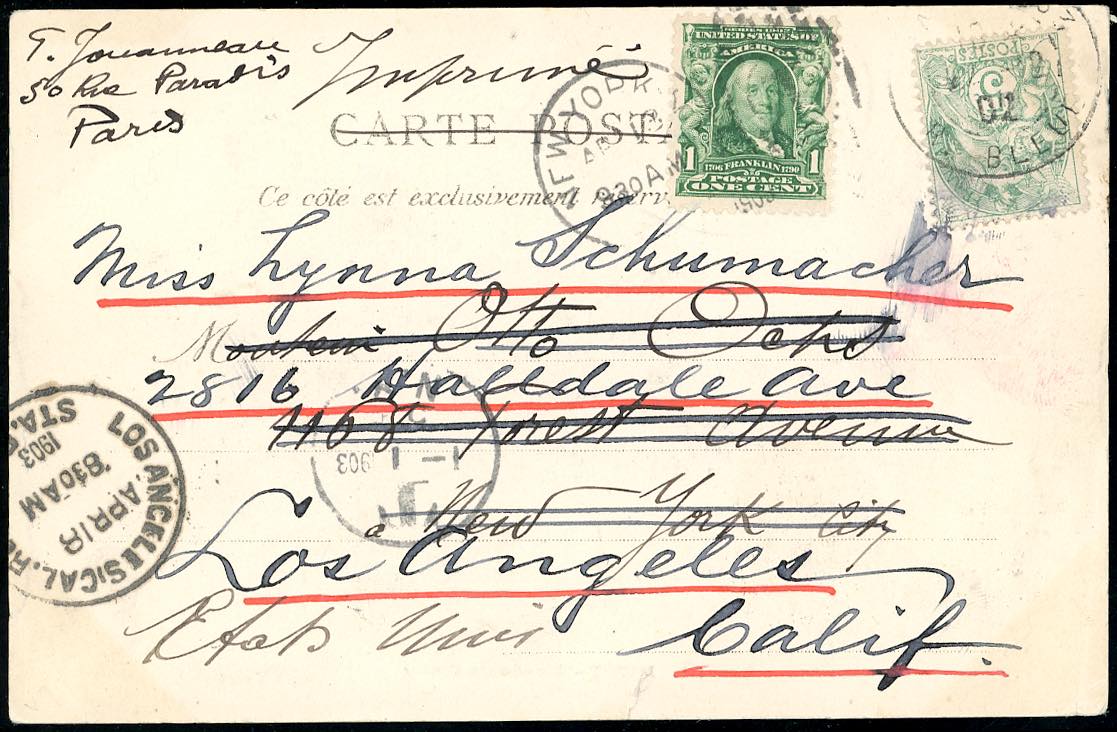 T. Jouanneau
50 Rue Paradis
Paris
Imprimé
CARTE POSTA
Ce côté est exclusivement réserv
SERIES 1902
UNITED STATES OF
AMERICA
1 1
1706 FRANKLIN 1790
POSTAGE
ONE CENT
NEW YORK
AP
930 AM
1903
POSTES
5
02
BLEUE
Miss Lynna Schumacher
M Otto Ochs
2816 Halldale Ave
1168 Forest Avenue
a New York City
Los Angeles
Etats Unis
Calif.
LOS ANGELES, CAL. RE
STA.
APR 18
830 AM
1903
N
1903